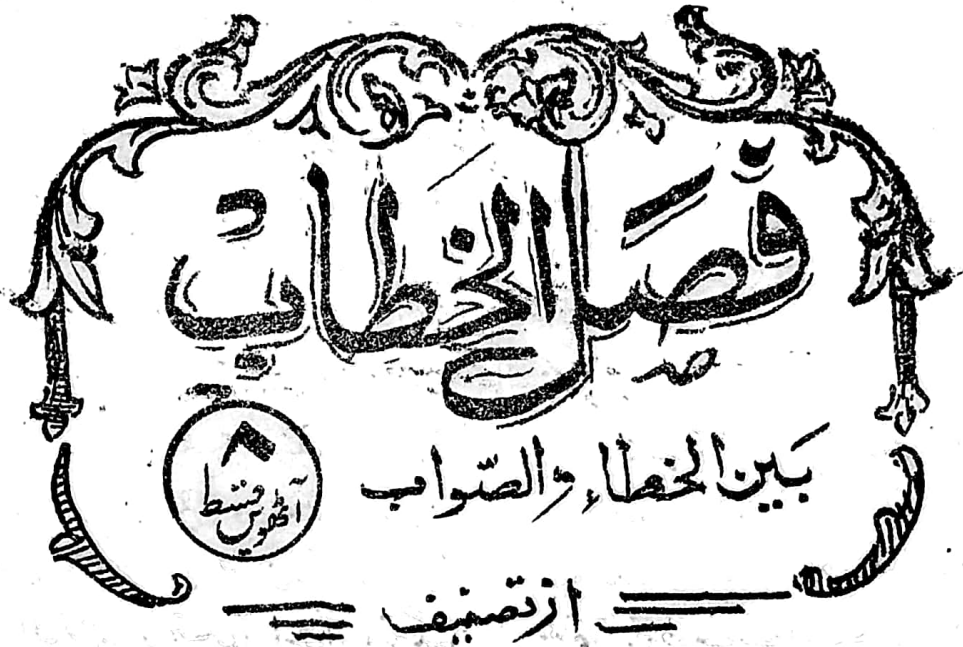 فَصْلُ الخِطَابِ
بَيْنَ الخطاءِ وَالصّوابِ
۸
آٹھویں قسط
از تصنیف